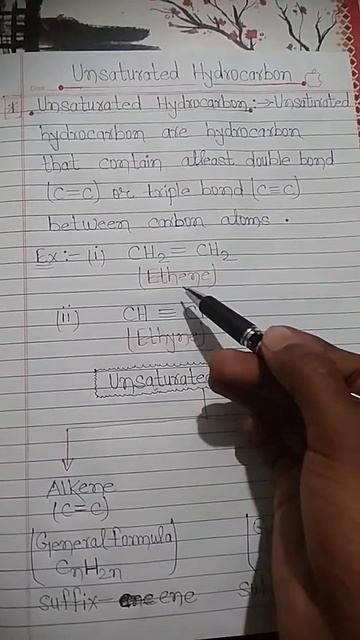 Unsaturated Hydrocarbon
Unsaturated Hydrocarbon :→ Unsaturated
hydrocarbon are hydrocarbon
that contain atleast double bond
(C=C) or triple bond (C=C)
between carbon atoms .
Ex:- (i) CH₂ = CH₂
(Ethene)
(ii) CH ≡
(Ethyne)
Unsaturated
Alkene
(C=C)
(General formula
CnH2n)
suffix- ene